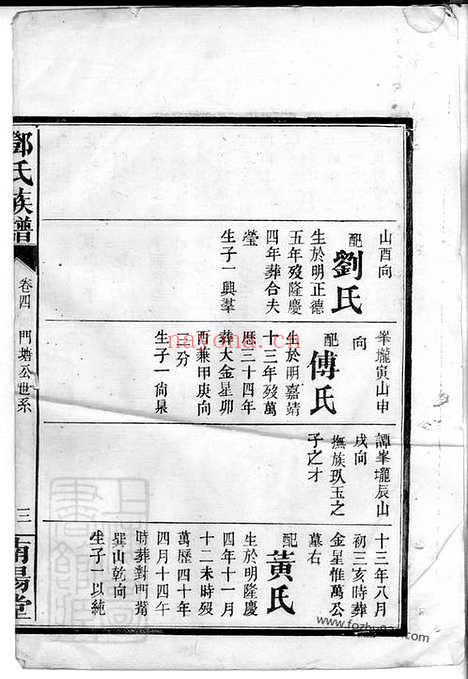 鄧氏族譜
卷四
門塘公世系
三
南陽堂
山酉向
配
劉氏
生於明正德
五年歿隆慶
四年葬合夫
塋
生子一興羣
峯壠寅山申
向
配
傅氏
生於明嘉靖
十三年歿萬
曆三十四年
葬大金星卯
酉兼甲庚向
三分
生子一尚泉
譚峯壠辰山
戌向
撫族玖玉之
子之才
十三年八月
初三亥時葬
金星惟萬公
墓右
配
黃氏
生於明隆慶
四年十一月
十二未時歿
萬曆四十年
四月十四午
時葬對門嘴
巽山乾向
生子一以統
nayona.cn
www.fozhu920.com